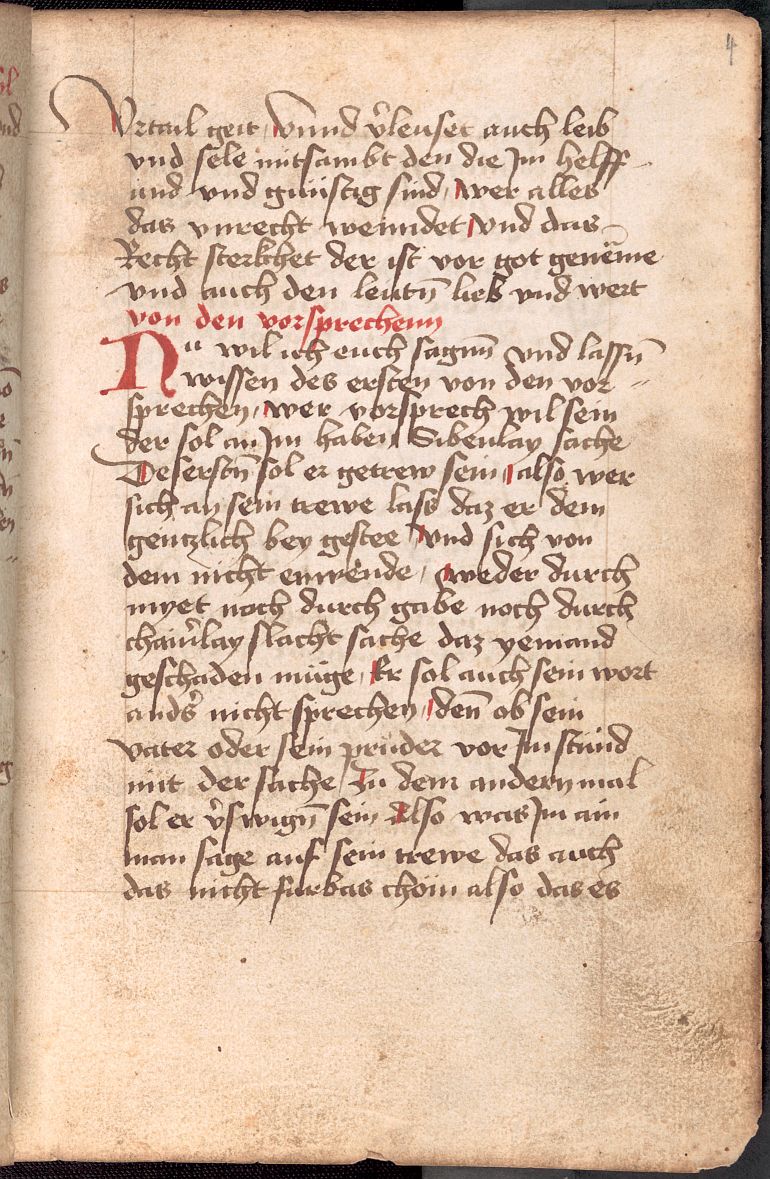 4
Vrtail geit vnnd v̉leuset auch leib
vnd sele mitsambt den die Jm helff
und vnd günstig sind, wer alles
das vnrecht weinndet vnd das
Recht sterkhet der ist vor got genëme
vnd auch den leutn̄ lieb vnd wert
von den vorsprechenn
Nu wil ich euch sagnn̄ vnd lassn̄
wissen des ersten von den vor=
sprechen, wer vorsprech wil sein
der sol an Jm haben Sibenlay sache
Deserstn̄ sol er getrew sein, also wer
sich an sein trewe lass daz er dem
gentzlich bey gestee vnd sich von
dem nicht enwende, weder durch
myet noch durch gabe noch durch
chain̉lay slacht sache daz yemand
geschaden müge, Er sol auch sein wort
ands̉ nicht sprechen, den̄ ob sein
vater oder sein prüder vor Jm stünd
mit der sache Zu dem andern mal
sol er v̉swign̄ sein Also was Jm ain
man sage auf sein trewe das auch
das nicht furbas chöm also das es